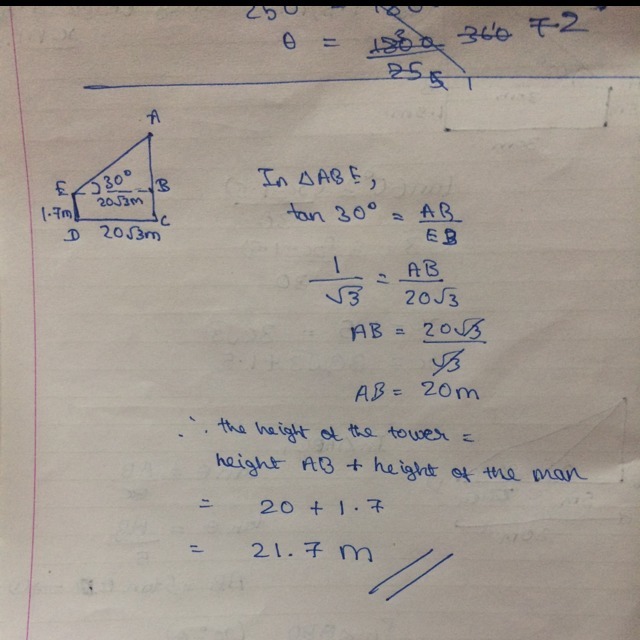 250
θ = 1800 360 7.2
25 5 1
A
E 30° B
20√3m
1.7m
D 20√3m C
In △ABE,
tan 30° = AB
EB
1 = AB
√3 20√3
AB = 20√3
√3
AB = 20m
∴ the height of the tower =
height AB + height of the man
= 20 + 1.7
= 21.7 m